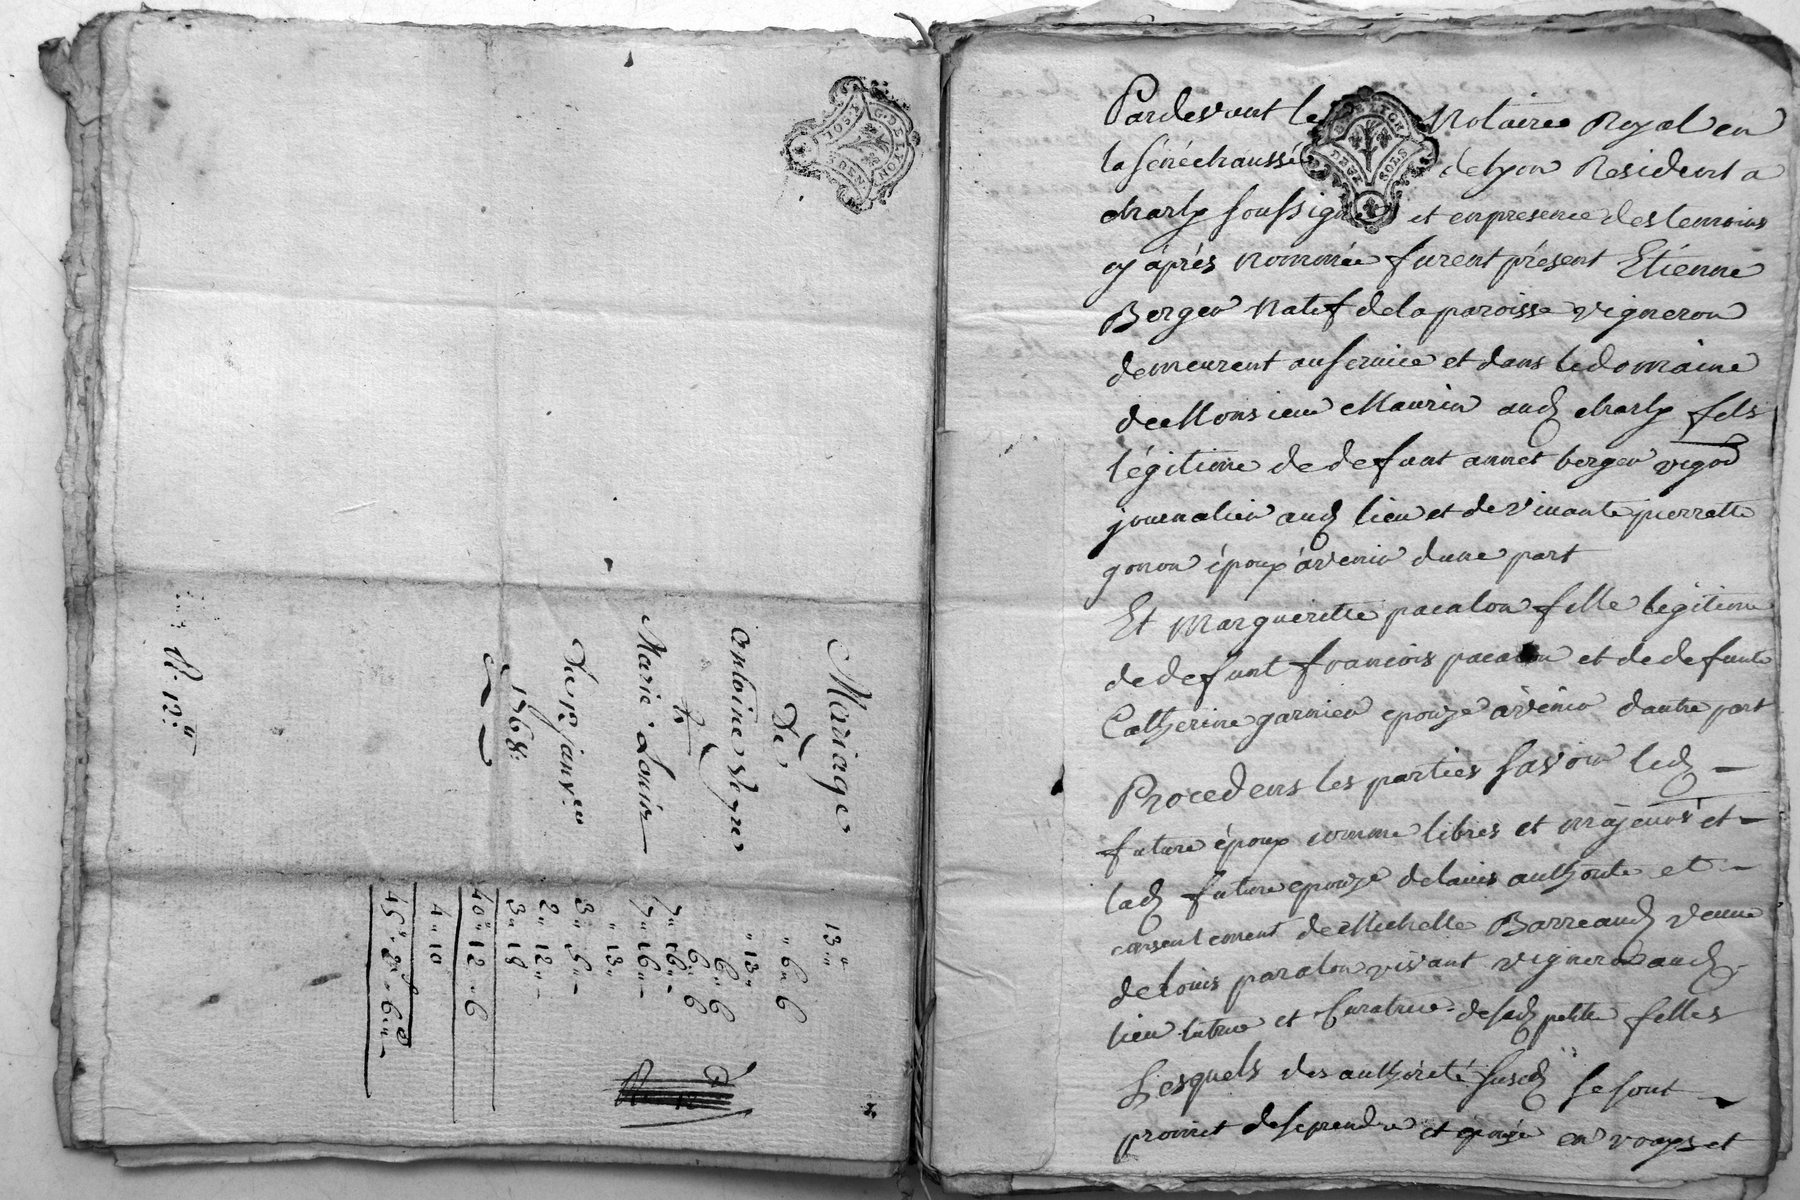 G. DE LYON
SOLS
DEN
Mariage
De
antoine Veyre
&
Marie Louis
De 12 janv.er
1768.
R. 12.
13"
" 6" 6
" 13"
6" 6
6" 6
7" 16"
7" 16"
" 13"
3" 5"
2" 12"
3" 18
40" 12" 6
4" 10
45" 2" 6
Pardevant le Notaire Royal en
la sénéchaussée de lyon Resident a
charly soussigné et en presence des temoins
cy àprés nommée furent présent Etienne
Berger natif de la paroisse vigneron
demeurent au service et dans le domaine
de Monsieur Maurin aud charly fils
légitime de defunt annet berger vigon
journalier aud lieu et de vivante pierrette
gonon époux àvenir dune part
Et Marguerite pacalon fille legitime
de defunt francois pacalon et de defunte
Catherine garnier epouze àvenir dautre part
Procedens les parties savoir led
future époux comme libres et màjeurs et
lad future epouze de lavis authorite et
consentement de Michelle Barreaud veuve
de louis pacalon vivant vigneron aud
lieu tutrice et Curatrice de sad petite filles
Lesquels des authorité susd se sont
promit de se prendre et epouze en vrays et